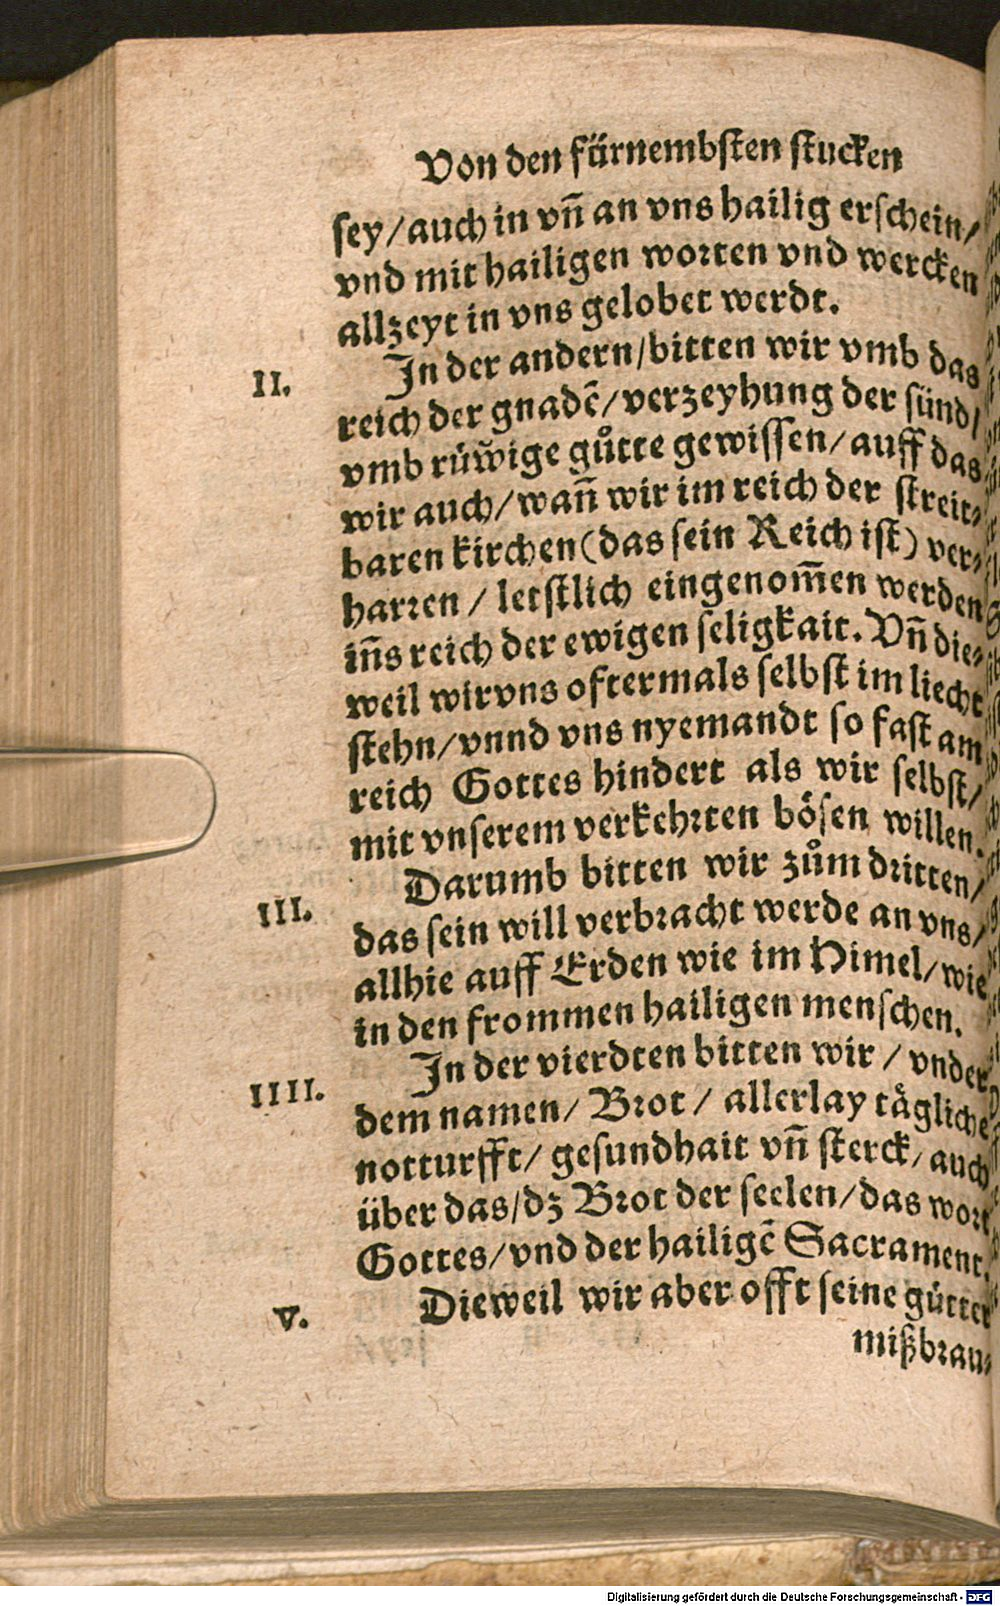 Von den fürnembsten stucken
sey/auch in vñ an vns hailig erschein/
vnd mit hailigen worten vnd wercken
allzeyt in vns gelobet werdt.
II.
In der andern/bitten wir vmb das
reich der gnadẽ/verzeyhung der sünd/
vmb rüwige gůtte gewissen/auff das
wir auch/wañ wir im reich der streit-
baren kirchen(das sein Reich ist) ver-
harren / letstlich eingenom̃en werden
iñs reich der ewigen seligkait. Vñ die-
weil wir vns oftermals selbst im liecht
stehn/vnnd vns nyemandt so fast am
reich Gottes hindert als wir selbst/
mit vnserem verkehrten bösen willen.
III.
Darumb bitten wir zům dritten/
das sein will verbracht werde an vns/
allhie auff Erden wie im Himel/wie
in den frommen hailigen menschen.
IIII.
In der vierdten bitten wir / vnder
dem namen/ Brot / allerlay tägliche
notturfft/ gesundhait vñ sterck/ auch
über das/dz Brot der seelen/das wort
Gottes/vnd der hailigẽ Sacrament.
V.
Dieweil wir aber offt seine gütter
mißbrau-
Digitalisierung gefördert durch die Deutsche Forschungsgemeinschaft - DFG